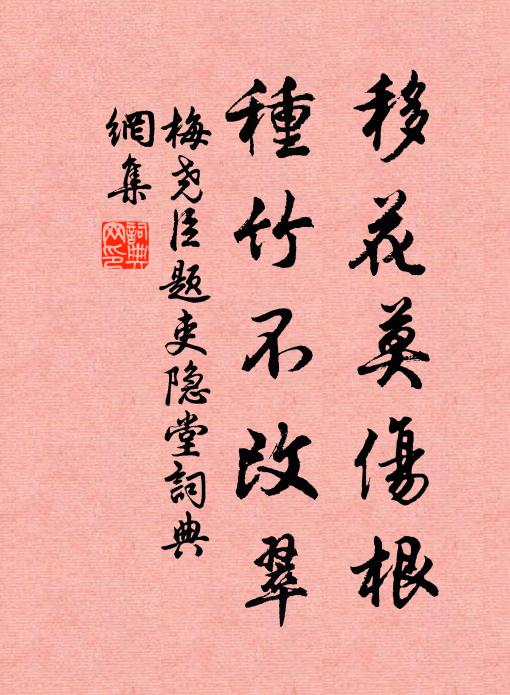 移花莫傷根
種竹不改翠
梅尧臣题吏隐堂詞典
網集
詞典网印